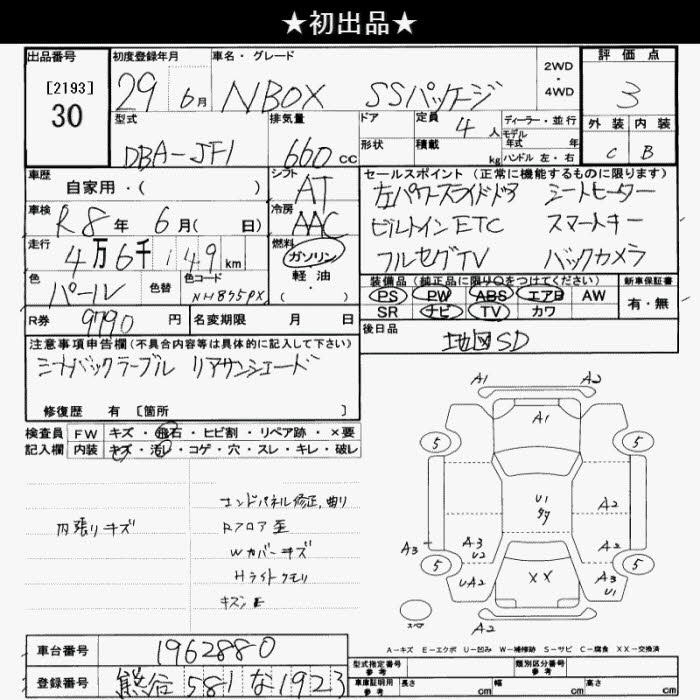 ★初出品★
出品番号 初度登録年月 車名・グレード 評価点
[2193]
30
29 6月 NBOX SSパッケージ 2WD・4WD 3
型式 排気量 ドア 定員 ディーラー・並行 外装 内装
DBA-JF1 660cc 4人 モデル年式 年 C B
形状 積載 kg ハンドル 左・右
車歴 シフト セールスポイント(正常に機能するものに限ります)
自家用・( ) AT 左パワースライドドア シートヒーター
車検 R8年 6月( 日) 冷房 AAC ビルトインETC スマートキー
走行 4万6千149km 燃料 ガソリン フルセグTV バックカメラ
軽油・( )
色 パール 色替 色コード NH875PX
装備品(純正品に限り○をつけてください) 新車保証書
PS PW ABS エアB AW 有・無
SR ナビ TV カワ
R券 9790円 名変期限 月 日 後日品 地図SD
注意事項申告欄(不具合内容等は具体的に記入して下さい)
シートバックテーブル リアサンシェード
修復歴 有 [箇所 ]
検査員 FW キズ・飛石・ヒビ割・リペア跡・×要
記入欄 内装 キズ・汚レ・コゲ・穴・スレ・キレ・破レ
エンドパネル修正、曲り
内張りキズ Rフロア歪
Wカバーキズ
Hライトクモリ
A1 A2
A1
5 5
U1
A2
A3 A3 U2 A2
5 UA2 XX A3 U1 5
スペア A2
A-キズ E-エクボ U-凹み W-補修跡 S-サビ C-腐食 XX-交換済
車台番号 1962880
型式指定番号 参考 類別区分番号 参考
登録番号 熊谷 581 な 1923
車庫証明用 参考 長さ cm 幅 cm 高さ cm